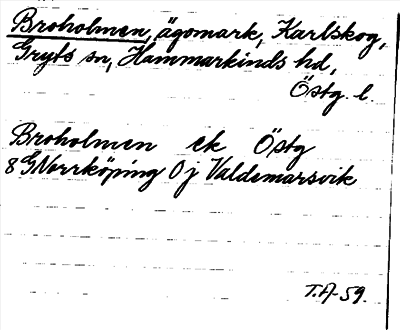 Broholmen, ägomark, Karlskog,
Gryts sn, Hammarkinds hd,
Östg. l.
Broholmen ek Östg
8 G Norrköping 0 j Valdemarsvik
T.A-59.